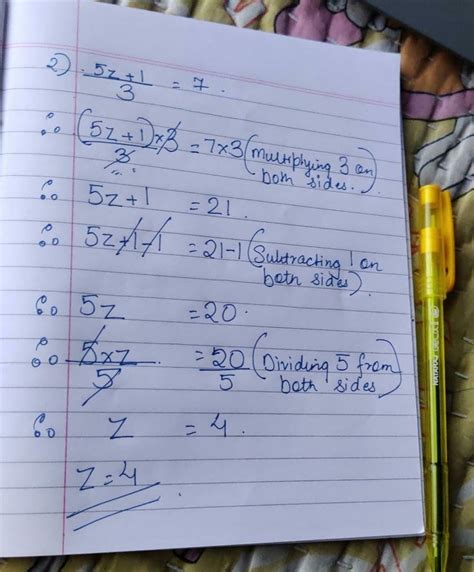 2) 5z+1/3 = 7.
∴ (5z+1)/3 ×3 = 7×3 (Multiplying 3 on both sides.)
∴ 5z+1 = 21.
∴ 5z+1-1 = 21-1 (Subtracting 1 on both sides).
∴ 5z = 20.
∴ 5×z/5 = 20/5 (Dividing 5 from both sides)
∴ z = 4.
z=4